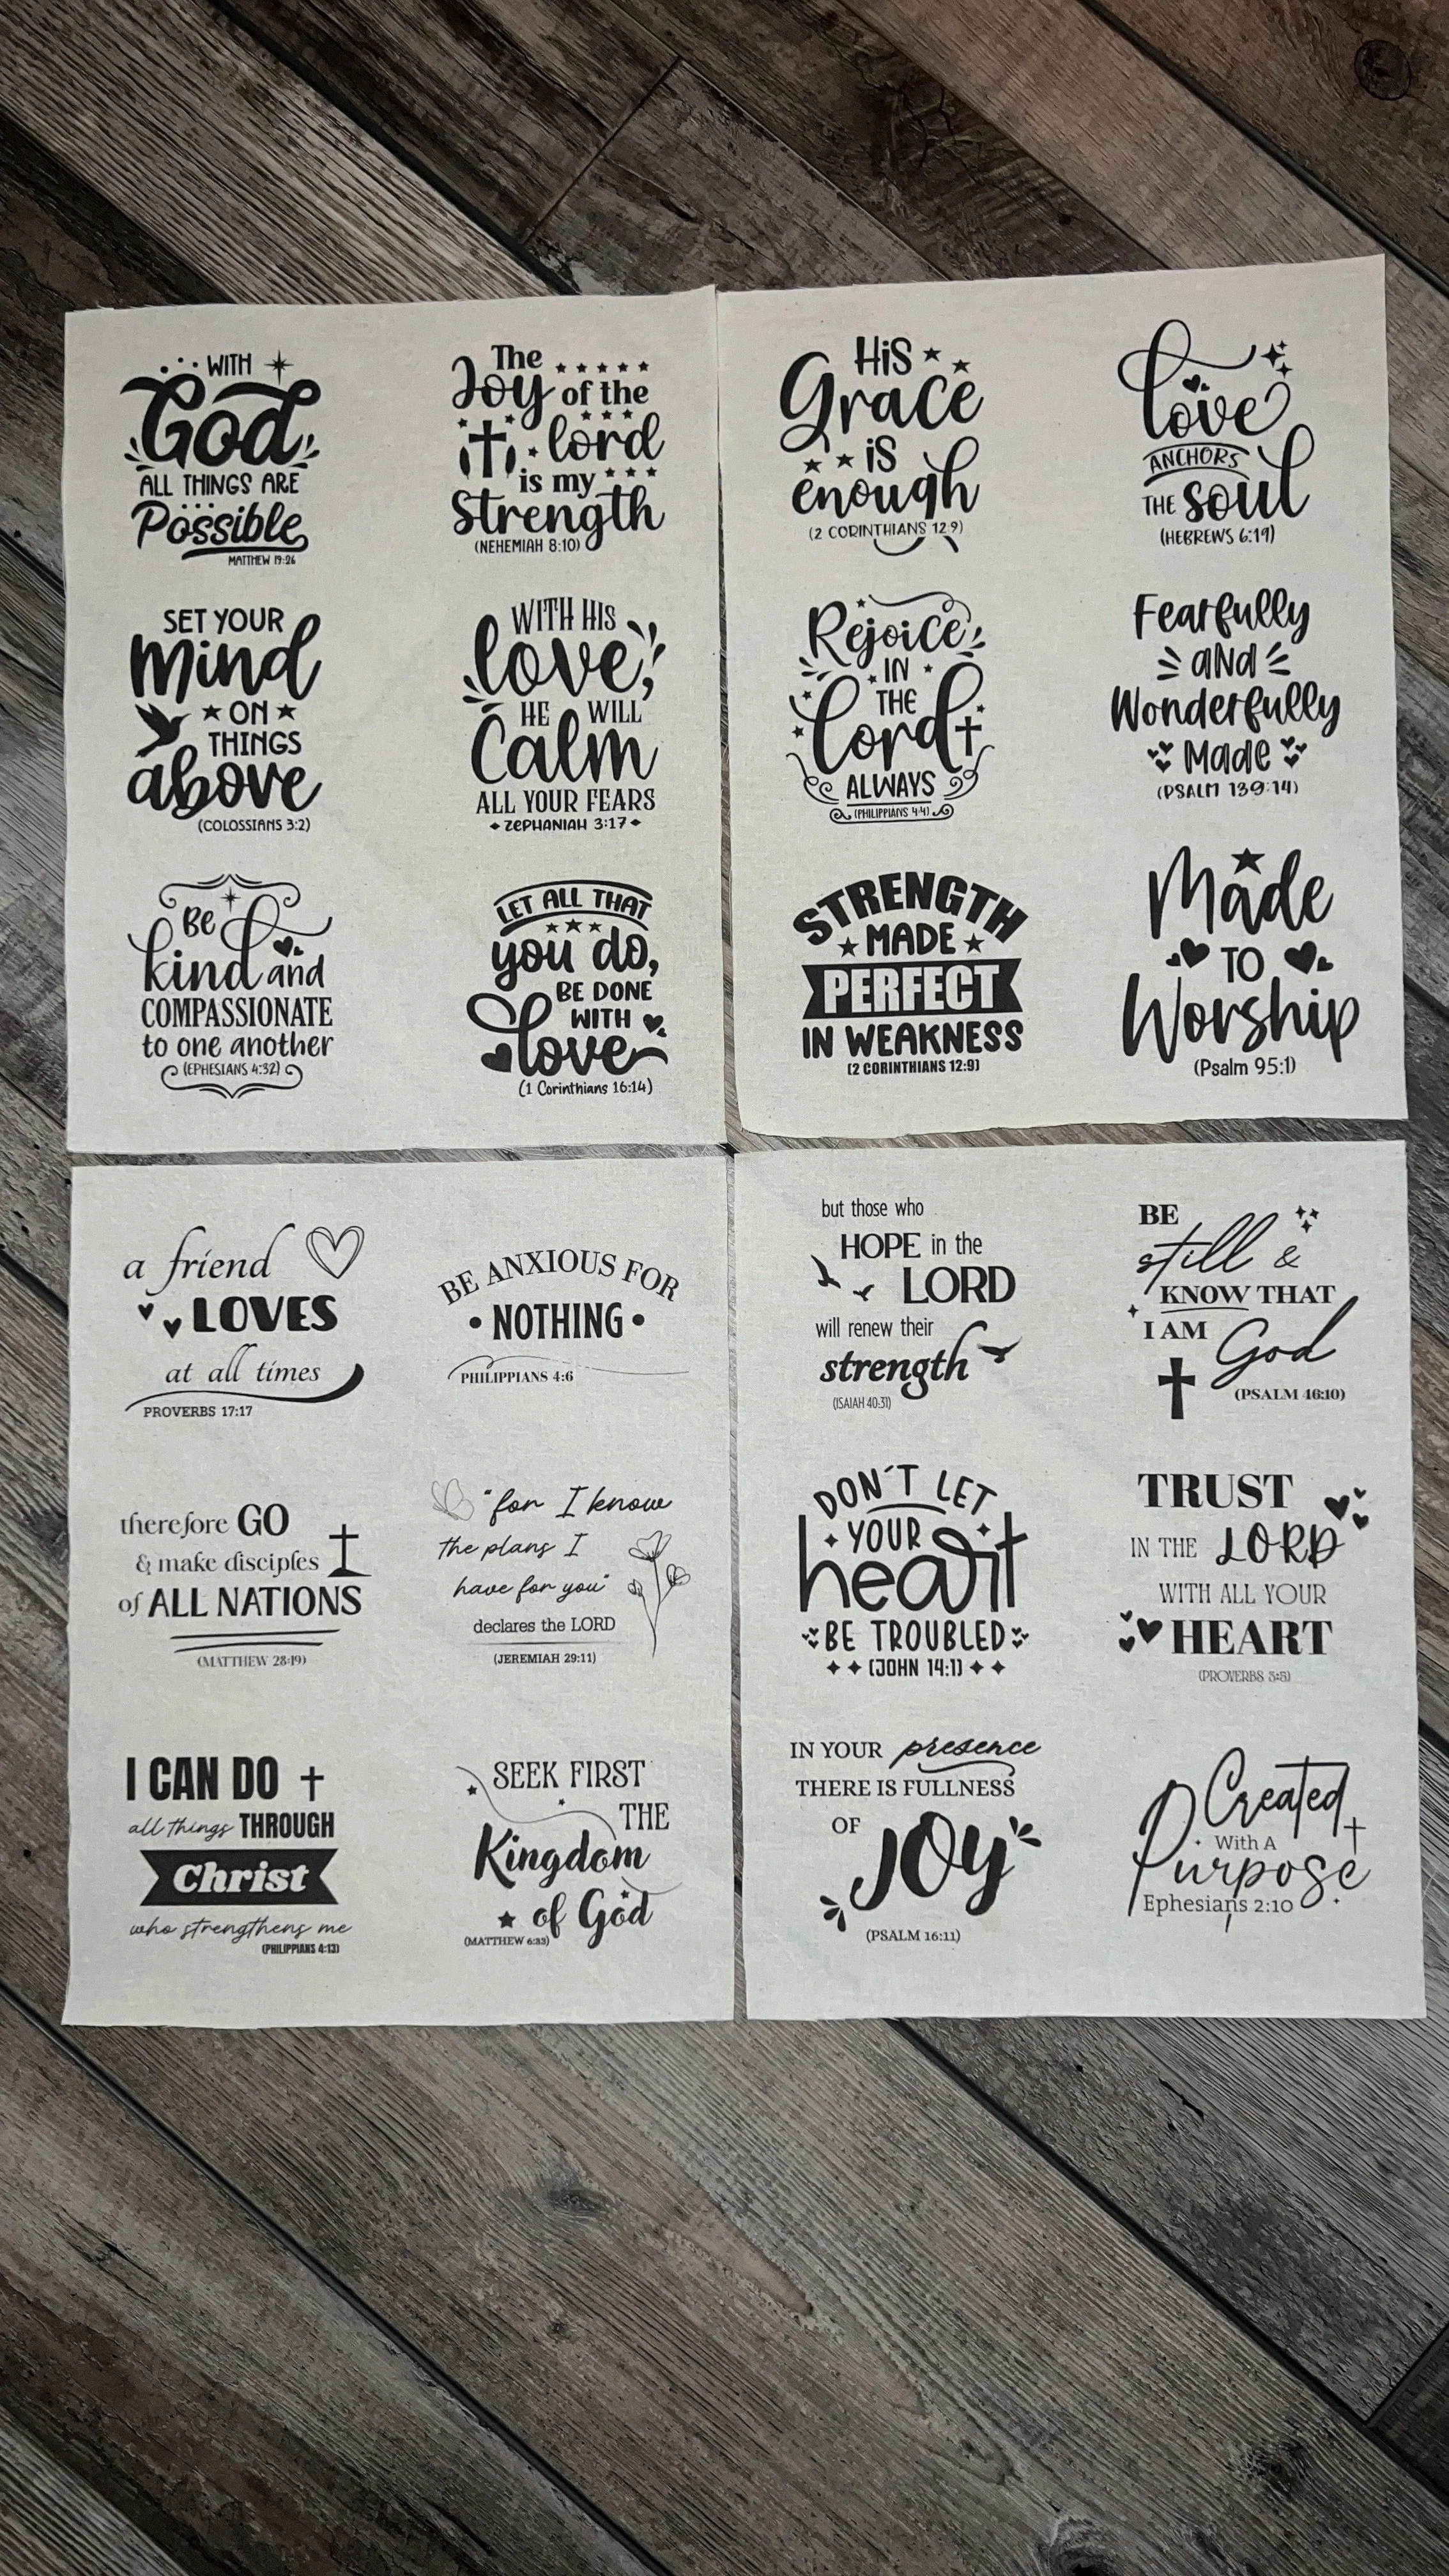 WITH
God
ALL THINGS ARE
Possible
MATTHEW 19:26
The
Joy of the
lord
is my
Strength
(NEHEMIAH 8:10)
SET YOUR
Mind
ON
THINGS
above
(COLOSSIANS 3:2)
WITH HIS
love,
HE WILL
Calm
ALL YOUR FEARS
ZEPHANIAH 3:17
Be
kind and
COMPASSIONATE
to one another
(EPHESIANS 4:32)
LET ALL THAT
you do,
BE DONE
WITH
love
(1 Corinthians 16:14)
HiS
Grace
iS
enough
(2 CORINTHIANS 12:9)
love
ANCHORS
THE soul
(HEBREWS 6:19)
Rejoice
IN
THE
Lord
ALWAYS
(PHILIPPIANS 4:4)
Fearfully
aNd
Wonderfully
Made
(PSALM 139:14)
STRENGTH
MADE
PERFECT
IN WEAKNESS
(2 CORINTHIANS 12:9)
Made
TO
Worship
(Psalm 95:1)
a friend
LOVES
at all times
PROVERBS 17:17
BE ANXIOUS FOR
• NOTHING •
PHILIPPIANS 4:6
therefore GO
& make disciples
of ALL NATIONS
(MATTHEW 28:19)
"for I know
the plans I
have for you"
declares the LORD
(JEREMIAH 29:11)
I CAN DO
all things THROUGH
Christ
who strengthens me
(PHILIPPIANS 4:13)
SEEK FIRST
THE
Kingdom
of God
(MATTHEW 6:33)
but those who
HOPE in the
LORD
will renew their
strength
(ISAIAH 40:31)
BE
still &
KNOW THAT
I AM
God
(PSALM 46:10)
DON'T LET
YOUR
heart
BE TROUBLED
(JOHN 14:1)
TRUST
IN THE LORD
WITH ALL YOUR
HEART
(PROVERBS 3:5)
IN YOUR presence
THERE IS FULLNESS
OF
JOy
(PSALM 16:11)
Created
With A
Purpose
Ephesians 2:10